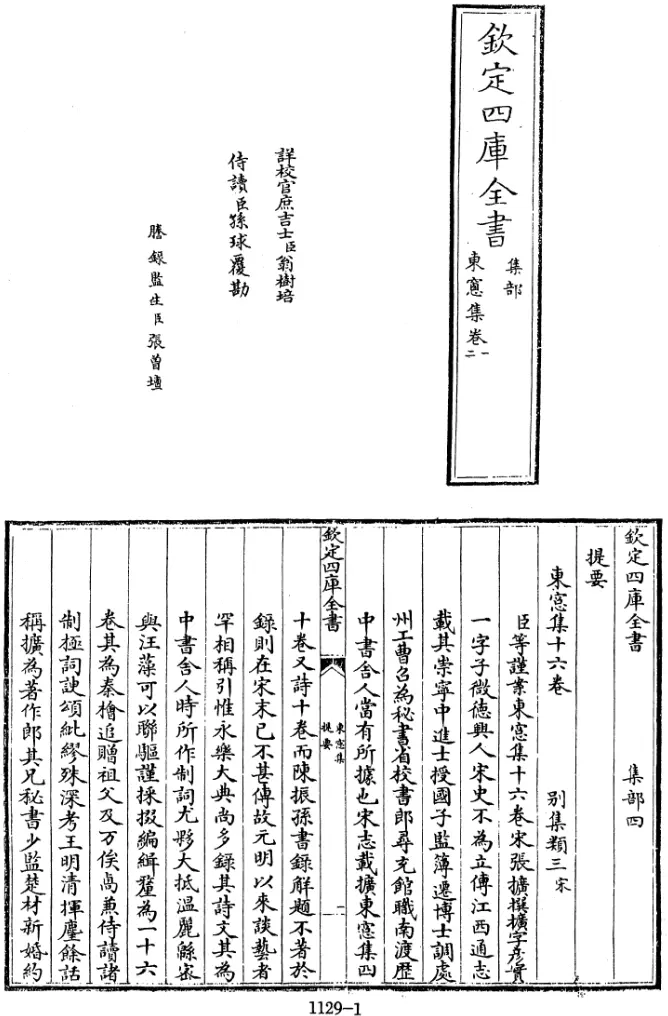 欽定四庫全書
集部
東窓集卷一
二
詳校官庶吉士臣翁樹培
侍讀臣孫球覆勘
謄錄監生臣張曾壚
欽定四庫全書 集部四
提要
東窓集十六卷 别集類三宋
臣等謹案東窓集十六卷宋張擴撰擴字彦實
一字子微德興人宋史不為立傳江西通志
載其崇寧中進士授國子監簿遷博士調處
州工曹召為秘書省校書郎尋充館職南渡歷
中書舍人當有所據也宋志載擴東窓集四
欽定四庫全書
東窓集
提要
二
十卷又詩十卷而陳振孫書錄解題不著於
錄則在宋末已不甚傳故元明以來談藝者
罕相稱引惟永樂大典尚多錄其詩文其為
中書舍人時所作制詞尤夥大抵溫麗綿宻
與汪藻可以聯驅謹採掇編緝釐為一十六
卷其為秦檜追贈祖父及万俟卨兼侍讀諸
制極詞諛頌紕繆殊深考王明清揮麈餘話
稱擴為著作郎其兄秘書少監楚材新婚約
1129-1